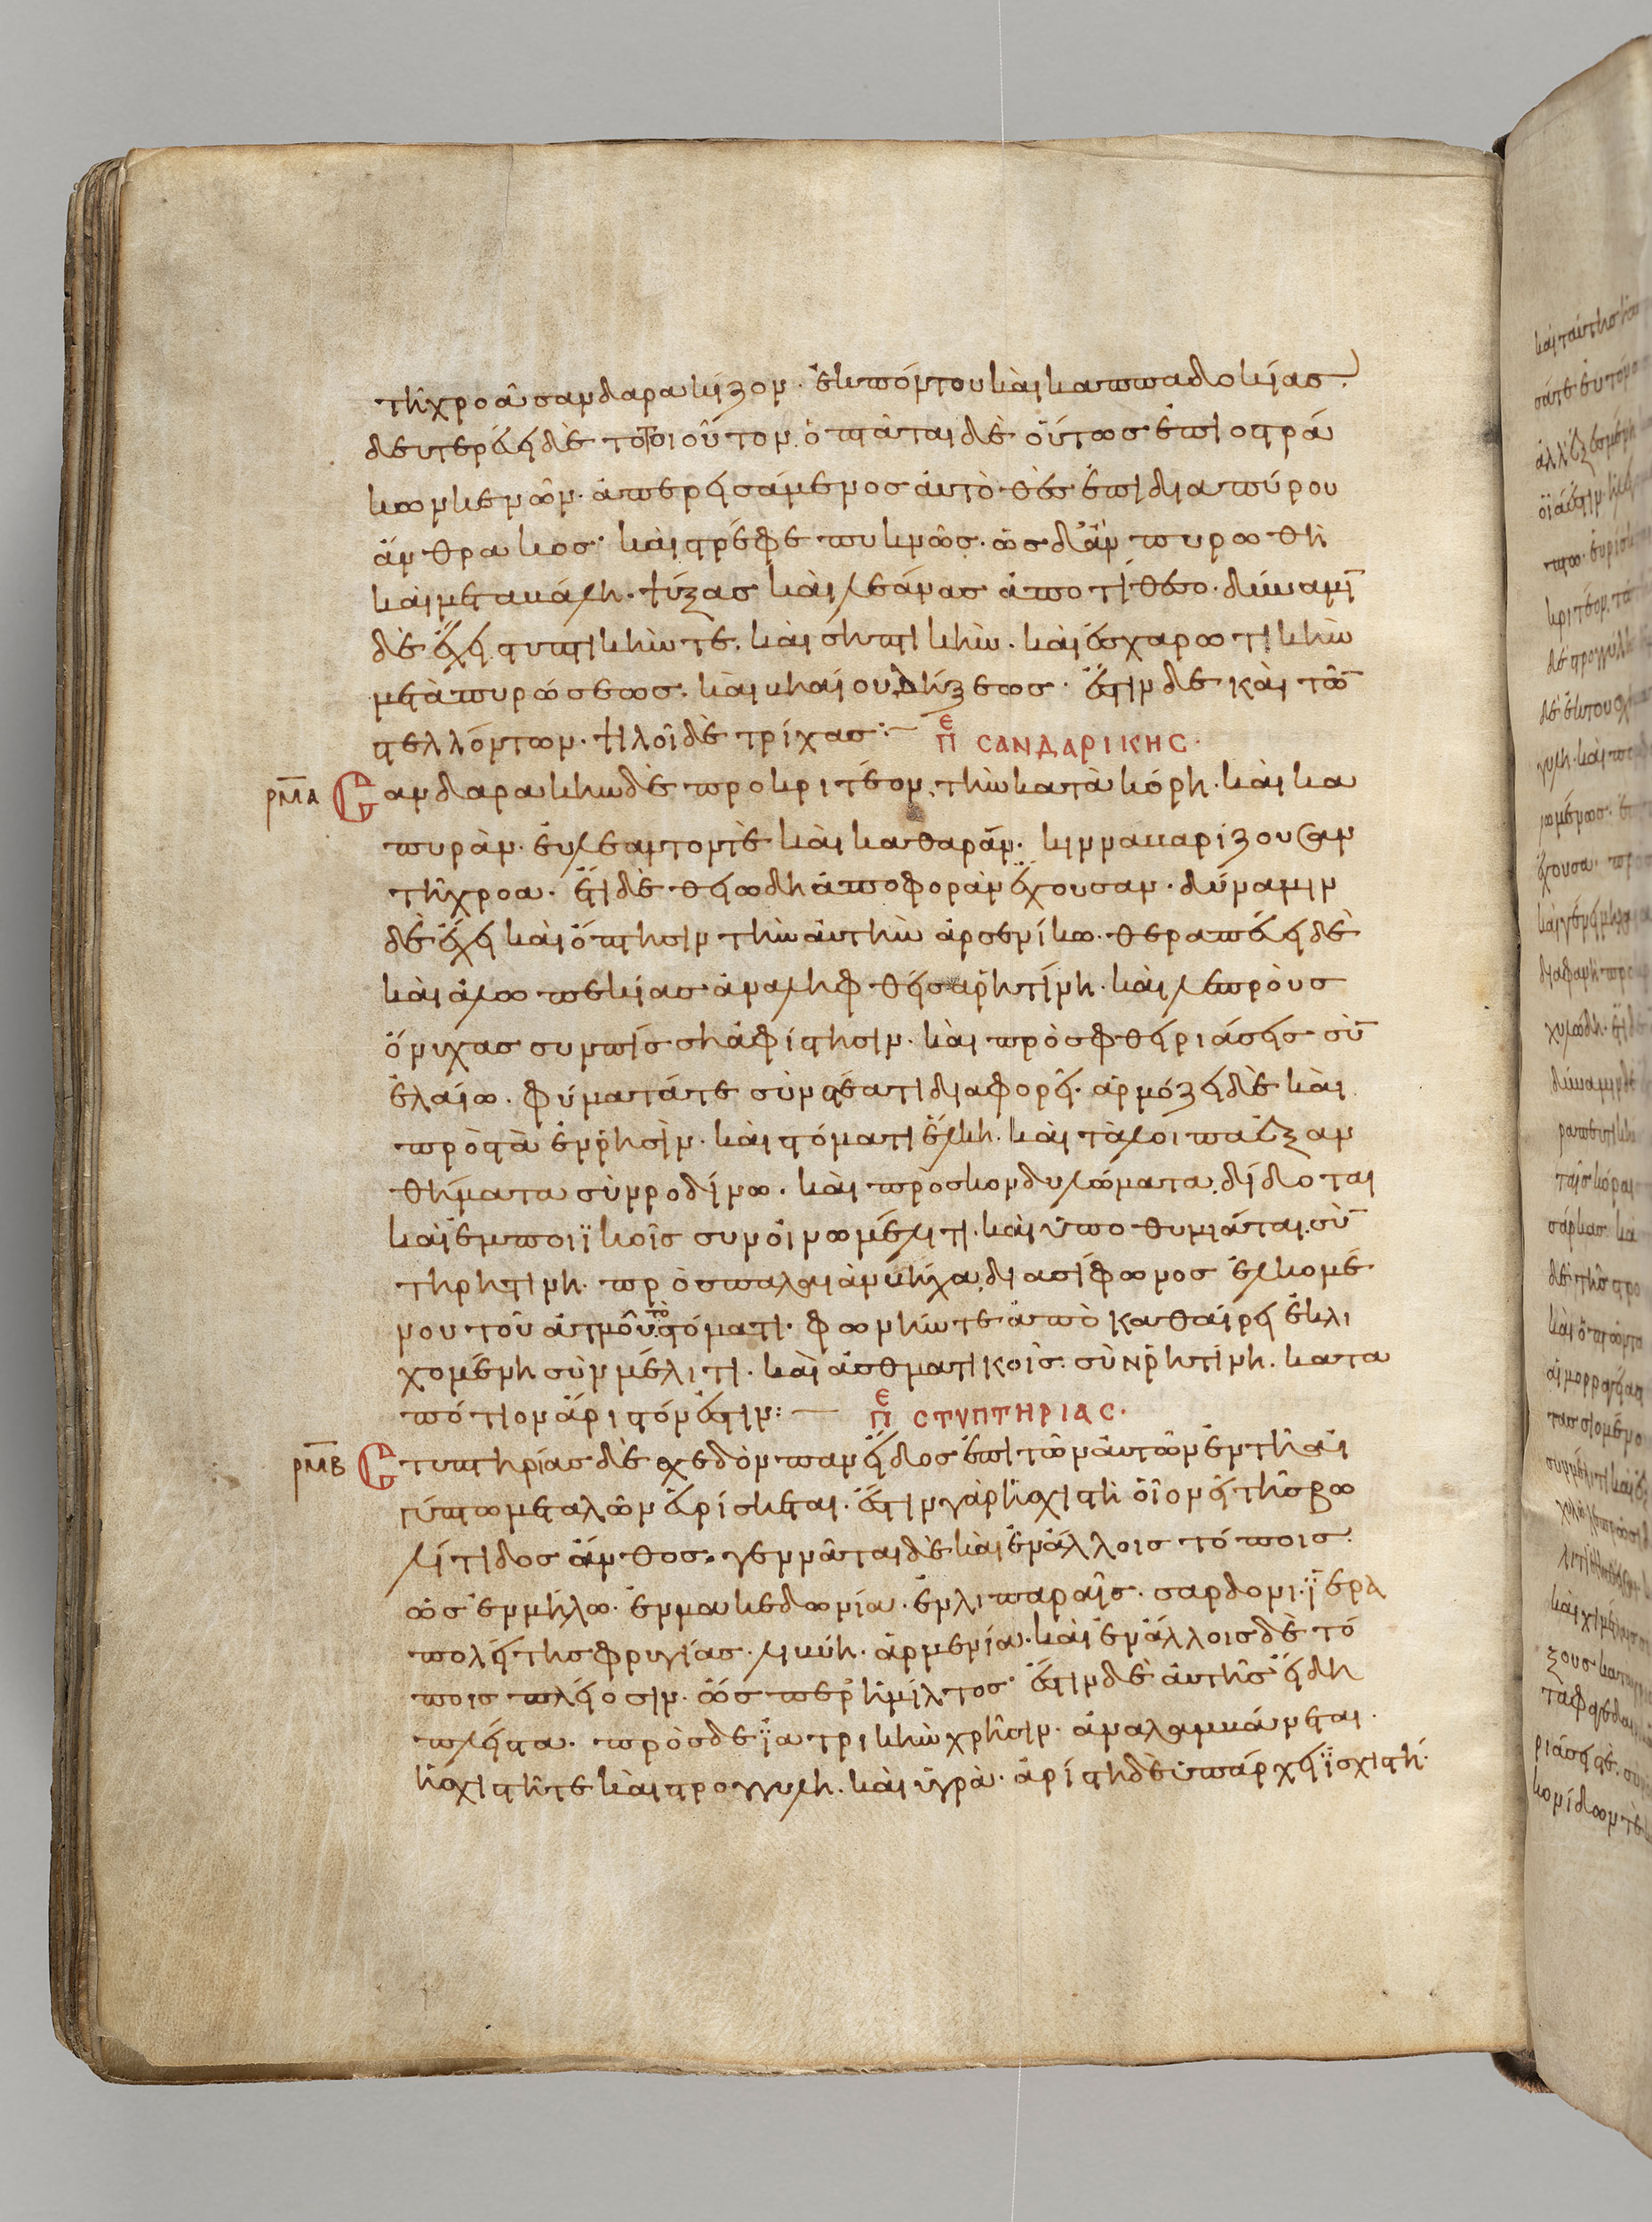 τῆ χροᾶ σανδαρακίζον· ἐκ πόντου καὶ καππαδοκίας·
δευτερεύει δὲ τὸ τοιοῦτον. ὀπτᾶται δὲ οὕτως ἐπὶ ὀστρά
κων κενῶν· ἀπερεισάμενος αὐτὸ θὲς ἐπὶ διαπύρου
ἄνθρακος· καὶ στρέφε πυκνῶς· ὡς δ' ἂν πυρωθῆ
καὶ μεταβάλη· ψύξας καὶ λεάνας ἀποτίθεσο· δύναμῑ
δὲ ἔχει στυπτικήν τε. καὶ σηπτικὴν. καὶ ἐσχαρωτικὴν
μετὰ πυρώσεως. καὶ βιαίου δήξεως· ἔστιν δε καὶ τῶ̄
στελλόντων· ψιλοῖ δὲ τρίχας:— πε ϹΑΝΔΑΡΙΚΗϹ·
ρμα Ϲανδαρακην δὲ προκριτέον, τὴν κατὰκόρη· καὶ κα
πυράν· εὐλέαντόν τὲ καὶ καθαράν· κινναβαρίζουσαν
τῆ χροα· ἔτι δὲ θειώδη ἀποφορὰν ἔχουσαν· δύναμιν
δὲ ἔχει καὶ ὄπτησιν τὴν αὐτὴν ἀρσενίκω· θεραπεύει δὲ
καὶ ἀλωπεκίας ἀναληφθεῖσα ῥητίνη· καὶ λεπροὺς
ὄνυχας συν πίσση ἀφίστησιν· καὶ πρὸς φθειριάσεις σὺ̄
ἐλαίω· φύματά τε σὺν στέατι διαφορεῖ· ἁρμόζει δὲ καὶ
πρὸς τὰ ἐν ῥησὶν· καὶ στόματι ἕλκη. καὶ τὰ λοιπὰ ἐξαν
θήματα σὺν ροδίνω· καὶ πρὸς κονδυλώματα. δίδοται
καὶ ἐμποιϊκοῖς συν οἰνωμέλιτι· καὶ ὑποθυμιᾶται. σὺ̄
τη ρητινη· πρὸς παλαιὰν βῆχα, διασίφωνος ἑλκομέ
νου τοῦ ἀτμοῦ τὸ στόματι· φωνήν τε ἀποκαθαίρει ἐκλι
χομένη σὺν μέλιτι· καὶ ἀσθματικοῖς· σὺν ῥητίνη. κατα
πότιον ἄριστόν ἐστιν:— πε ϹΤΥΠΤΗΡΙΑϹ·
ρμβ Ϲτυπτηρίας δὲ σχεδὸν πᾶν εἶδος ἐπὶ τῶν αὐτῶν ἐν τῆ αἰ
γύπτω μεταλῶν εὑρίσκεται· ἔστιν γὰρ ἡ σχιστὴ οἷον εἰ τῆς βω
λίτιδος ἄνθος. γεννᾶται δὲ καὶ ἐν ἄλλοις τόποις·
ὡς ἐν μήλω· ἐν μακεδωνία· ἐν λιπαραῖς· σαρδονι· ϊερα
πολει της φρυγίας· λιβύη· ἀρμενία· καὶ ἐν ἄλλοις δὲ τό
ποις πλείοσιν· ὥσπερ ἡ μίλτος· ἔστιν δὲ αὐτῆς εἴδη
πλεῖστα· πρὸς δὲ ϊατρικὴν χρῆσιν· ἀναλαμβάνεται·
ἡ σχιστῆ τε καὶ στρογγυλη. καὶ ὑγρὰ· ἀρίστη δὲ ὑπάρχει ἡ σχιστή·